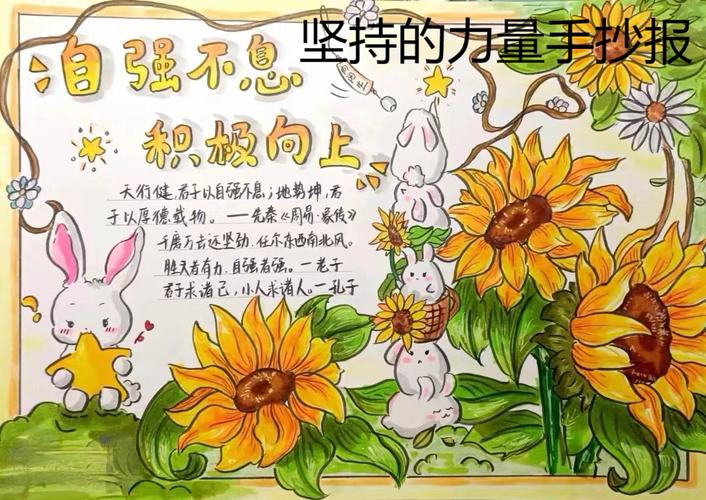 坚持的力量手抄报
自强不息
积极向上
天行健,君子以自强不息;地势坤,君
子以厚德载物。——先秦《周易·象传》
千磨万击还坚劲,任尔东西南北风。
胜人者有力,自强者强。—老子
君子求诸己,小人求诸人。—孔子